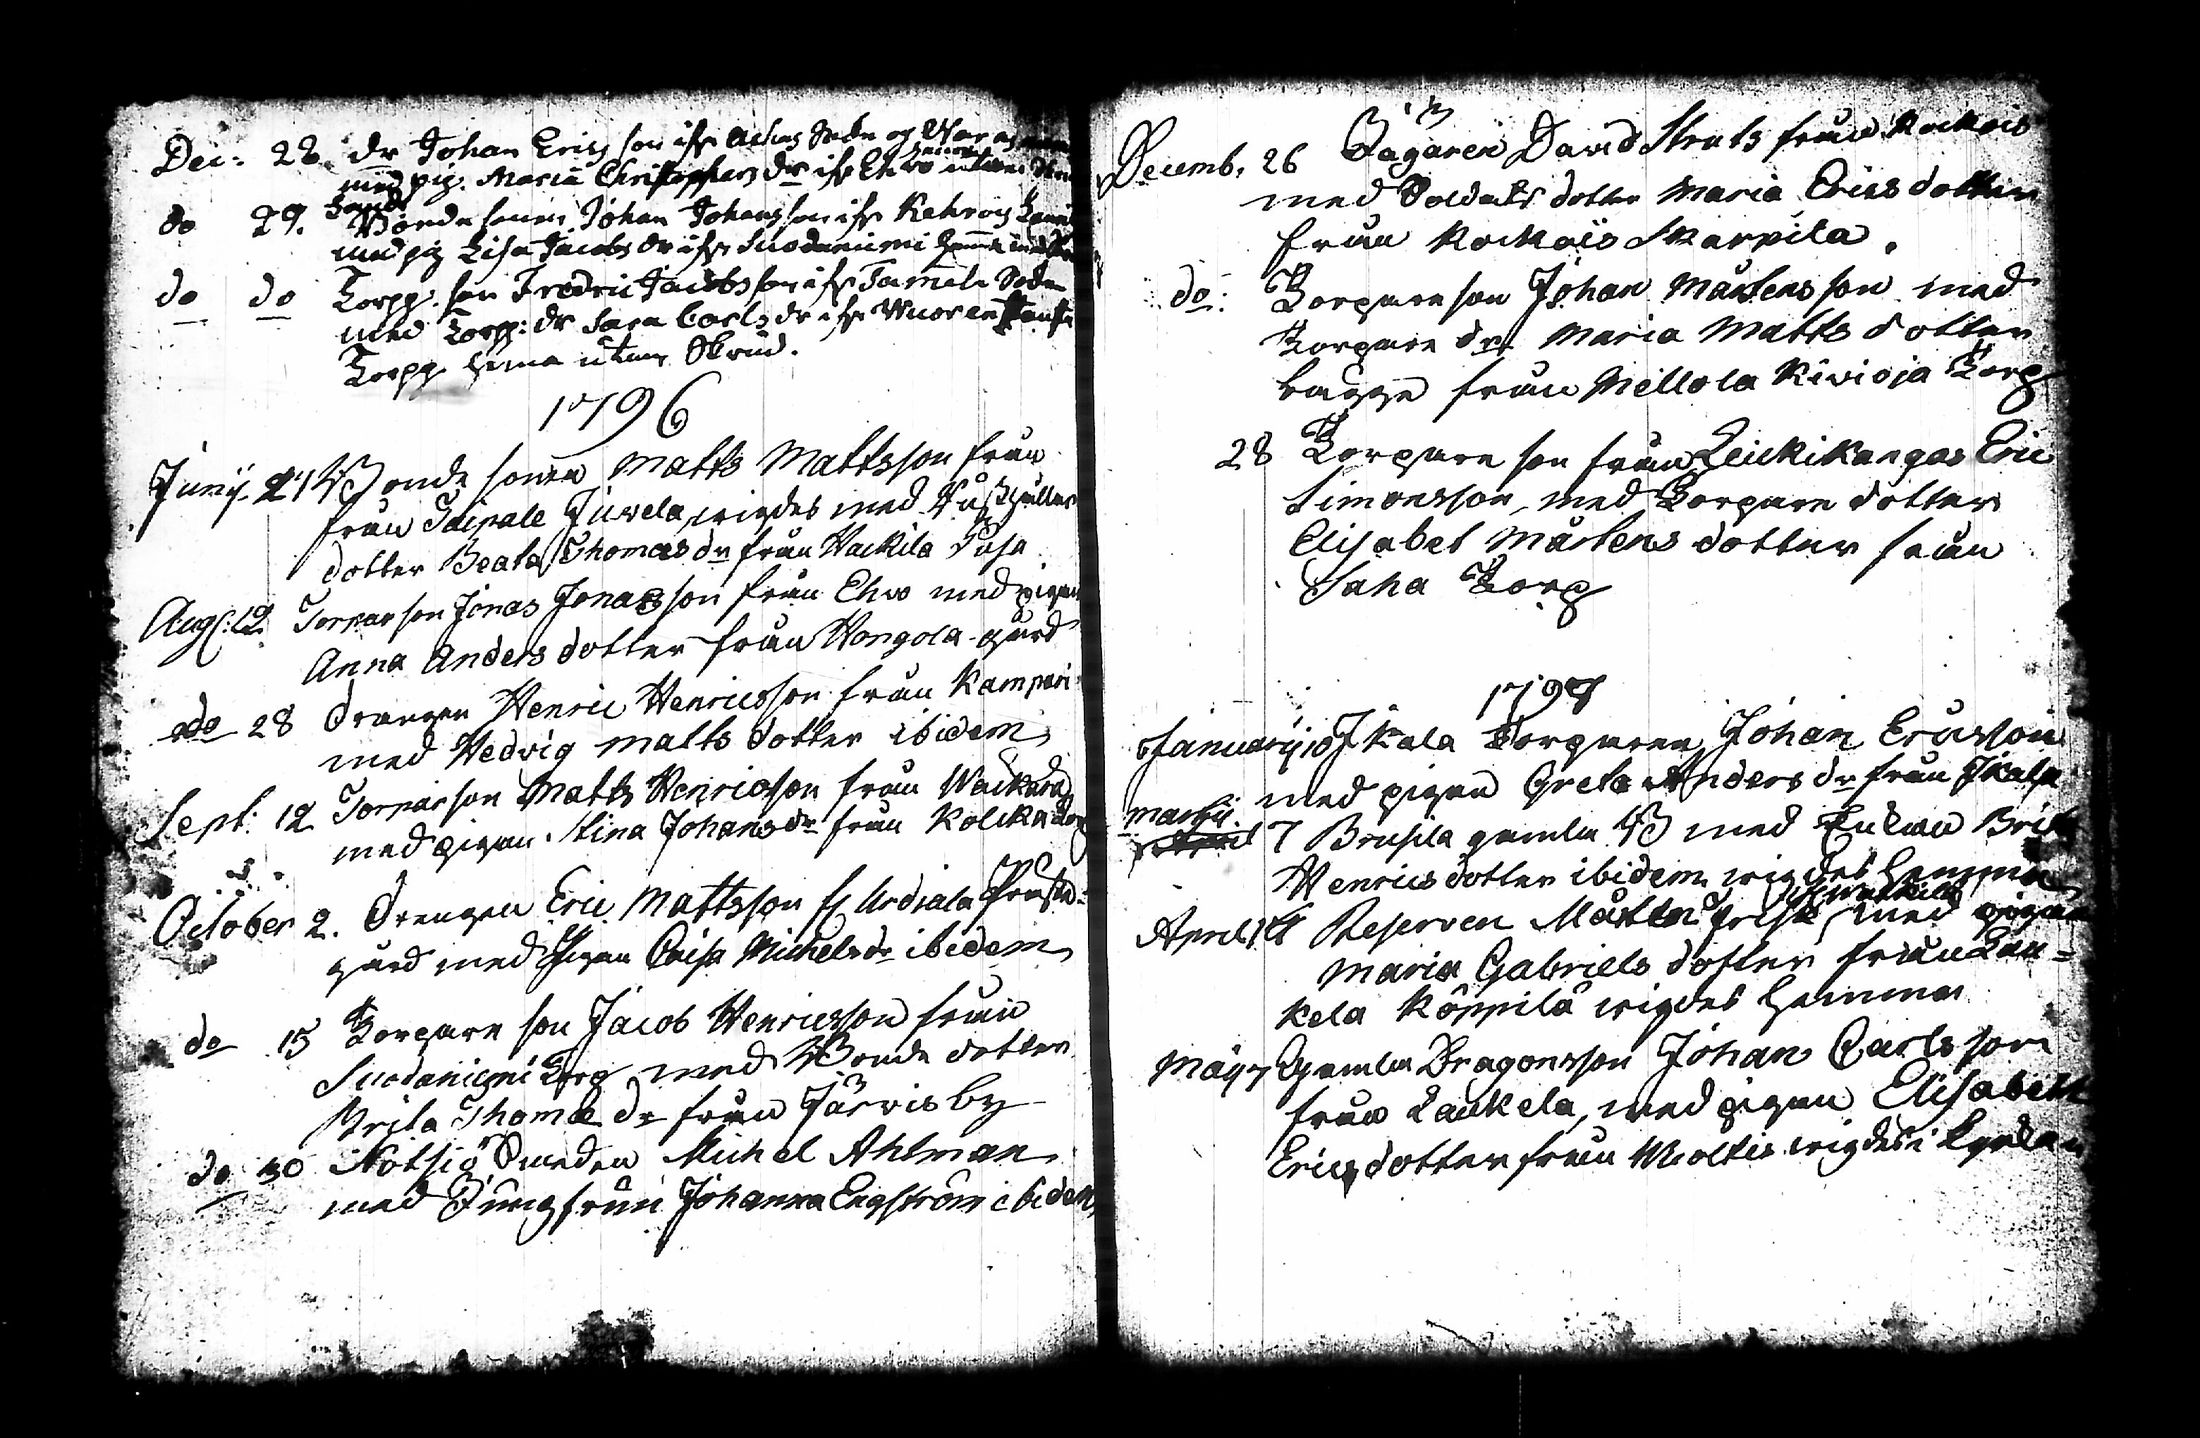 Dec: 28. dr Johan Erics son ifr
med pig. Maria Christophers dr ifr Ehro utan
do 29. Bonde sonen Johan Johans son ifr Kehro
med pig Lisa Jacobs dr ifr Suodeniemi hemma
do do Torpp. son Fredric Jacobs son ifr Tammela Soken
med Torpp: dr Sara Carls dr ifr Wuorenpää
Torpp hema utan Skrud.
1796
Junij 24 Bonde sonen Matts Mattsson från
från Taipale Juvela, wigdes med Rusthollare
dotter Beata Thomas dr från Wackila
Aug: 12. Torpar son Jonas Jonasson från Ehro med pigan
Anna Anders dotter från Hongola gård
do 28 Drängen Henric Henricsson från Kampari
med Hedvig Matts dotter ibidem
Sept: 12 Torpar son Matts Henricsson från
med pigan Stina Johans dr från Kolcka Torp
October 2. Drängen Eric Mattsson fr Urdiala Präste-
gård med Pigan Caisa Michels dr ibidem
do 15 Torpare son Jacob Henricsson från
Suodeniemi Torp med Bonde dotter
Brita Thomæ dr från Järvis by
do 30 Nötsiö Smeden Michel Ahlman
med Jungfrun Johanna Engström ibidem
Decemb. 26 Jägaren David Struts från Kockois
med Soldats dotter Maria Erics dotter
från Kockois Skarpila.
do: Torpare son Johan Mårtens son med
Torpare dr Maria Matts dotter
bägge från Mellola Kivioja Torp
28 Torpare son från Leickikangas Eric
Simonsson, med Torpare dotter
Elisabet Mårtens dotter från
Saha Torp
1797
Januarij 10 Ikala Torparen Johan Ericsson
med pigan Greta Anders dr från Ikala
Martij 7 Brusila gamla B med Enkan Brita
Henrics dotter ibidem wigdes hemma
April 17 Reserven Mårten Frisk med pigan
Maria Gabriels dotter från Lau=
kela Köppilä wigdes hemma
Maij 7 Gamla Dragonsson Johan Carls son
från Laukela, med pigan Elisabeth
Erics dotter från Woltis wigdes i Kyrkan